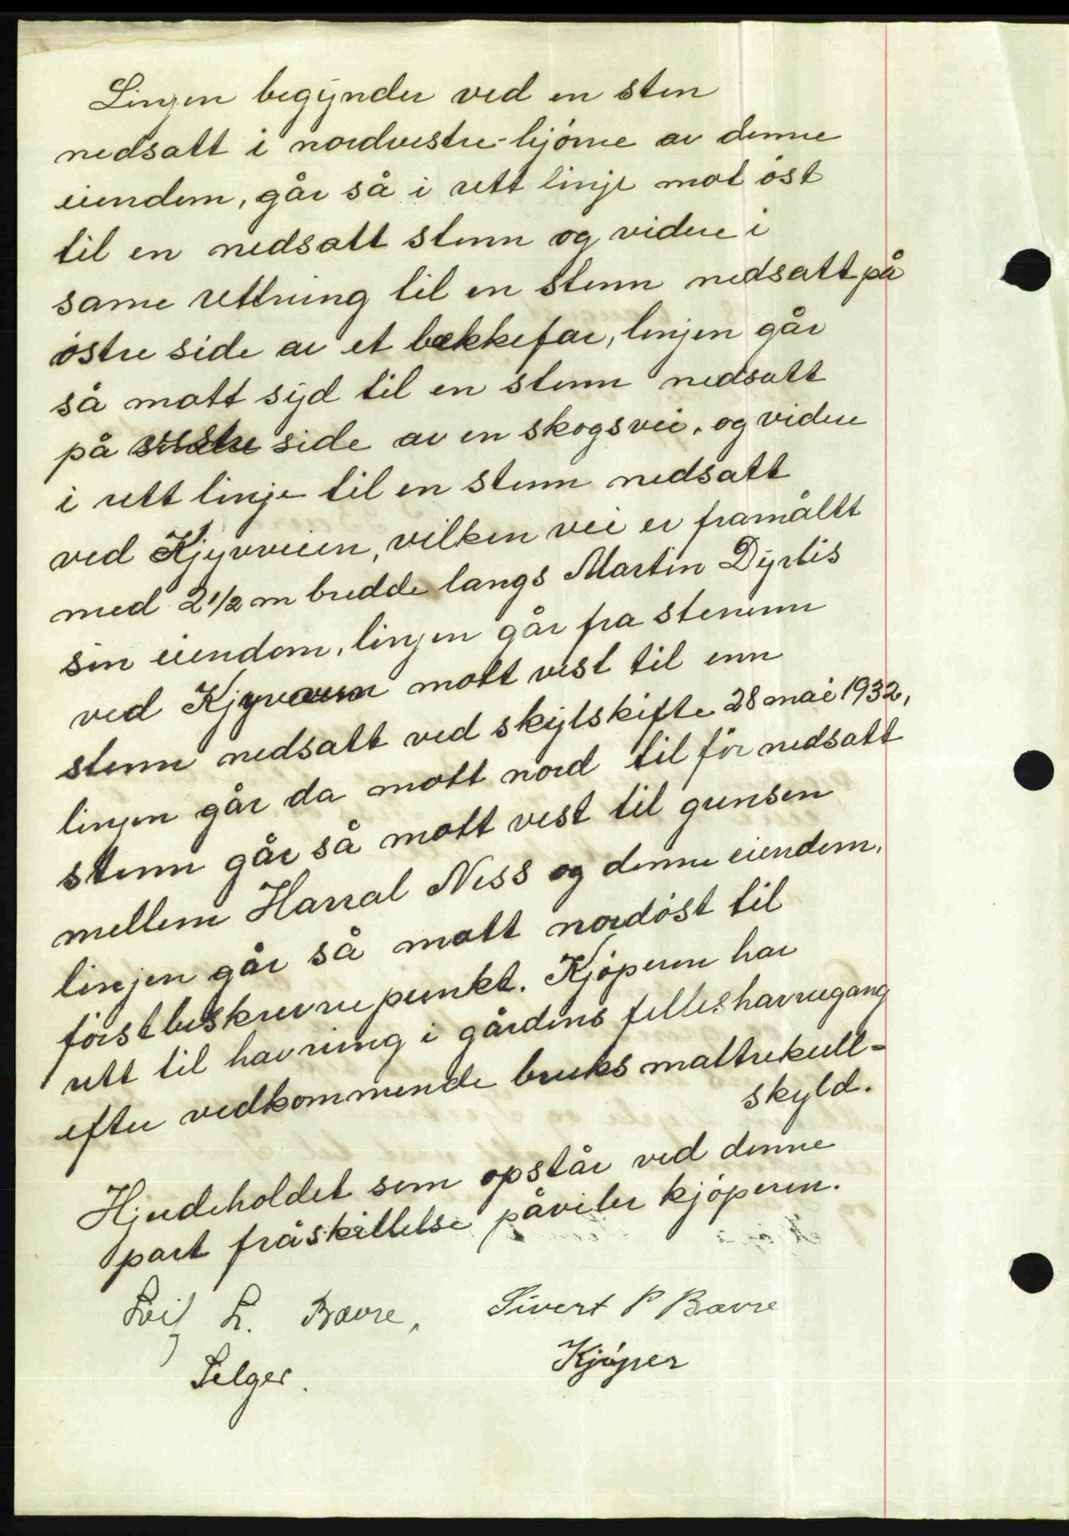 Linjen begijnder ved en sten
nedsatt i nordvestre-hjórne av denne
eiendom, går så i rett linje mot óst
til en nedsatt stenn og videre i
same rettning til en stenn nedsatt på
óstre side av et bækkefar, linjen går
så mott sijd til en stenn nedsatt
på side av en skogsvei, og videre
i rett linje til en stenn nedsatt
ved Kjyvveien, vilken vei er framåltt
med 2 1/2 m bredde langs Martin Dÿrlis
sin eiendom, linjen går fra stenenn
ved mott vest til enn
stenn nedsatt ved skijlskifte 28 mai 1932,
linjen går da mott nord til fór nedsatt
stenn går så mott vest til grensen
mellem Harral Ness og denne eiendom,
linjen går så mott nordóst til
fórstbeskrevne punkt. Kjóperen har
rett til havning i gårdens felleshavnegang
efter vedkommende bruks mattrekull=
skyld.
Hjerdeholdet som opstår ved denne
part fråskillelse påviler kjóperen.
Leif L. Bævre, Sivert P Bævre
Selger. Kjóper